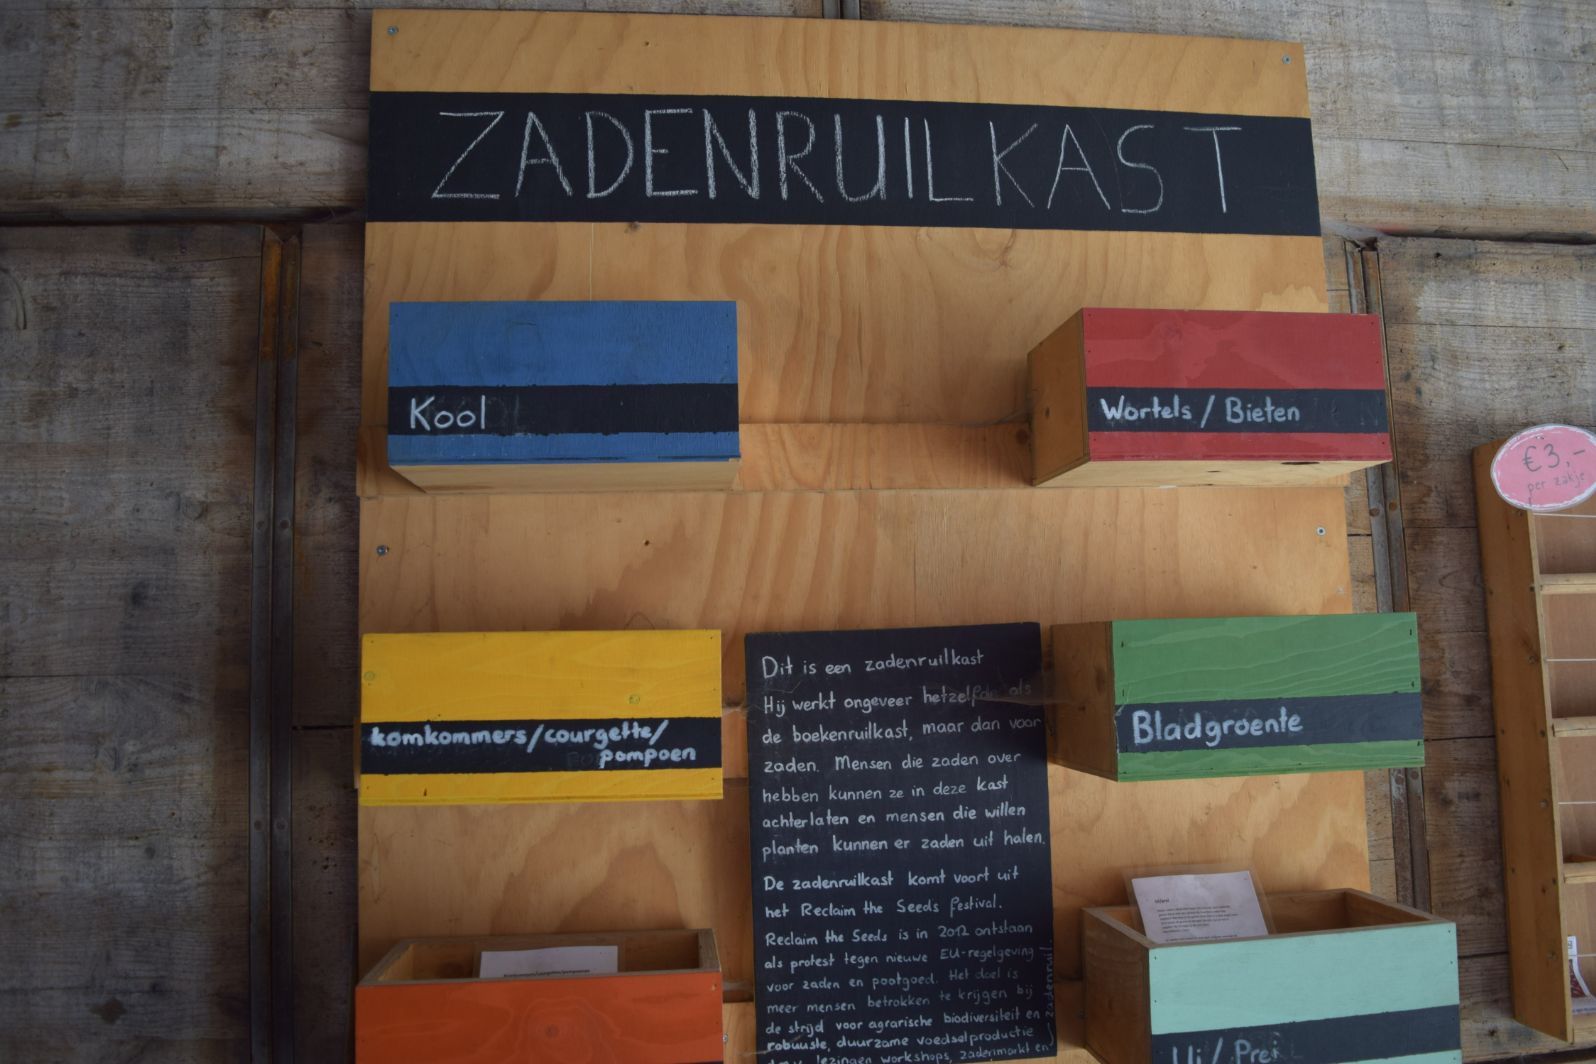 ZADENRUILKAST
Kool
Wortels / Bieten
€3,-
per zakje
komkommers/courgette/
pompoen
Bladgroente
Dit is een zadenruilkast
Hij werkt ongeveer hetzelfde als
de boekenruilkast, maar dan voor
zaden. Mensen die zaden over
hebben kunnen ze in deze kast
achterlaten en mensen die willen
planten kunnen er zaden uit halen.
De zadenruilkast komt voort uit
het Reclaim the Seeds festival.
Reclaim the Seeds is in 2012 ontstaan
als protest tegen nieuwe EU-regelgeving
voor zaden en pootgoed. Het doel is
meer mensen betrokken te krijgen bij
de strijd voor agrarische biodiversiteit en
robuuste, duurzame voedselproductie
lezingen workshops, zadenmarkt en
zadenruil.
Ui / Prei